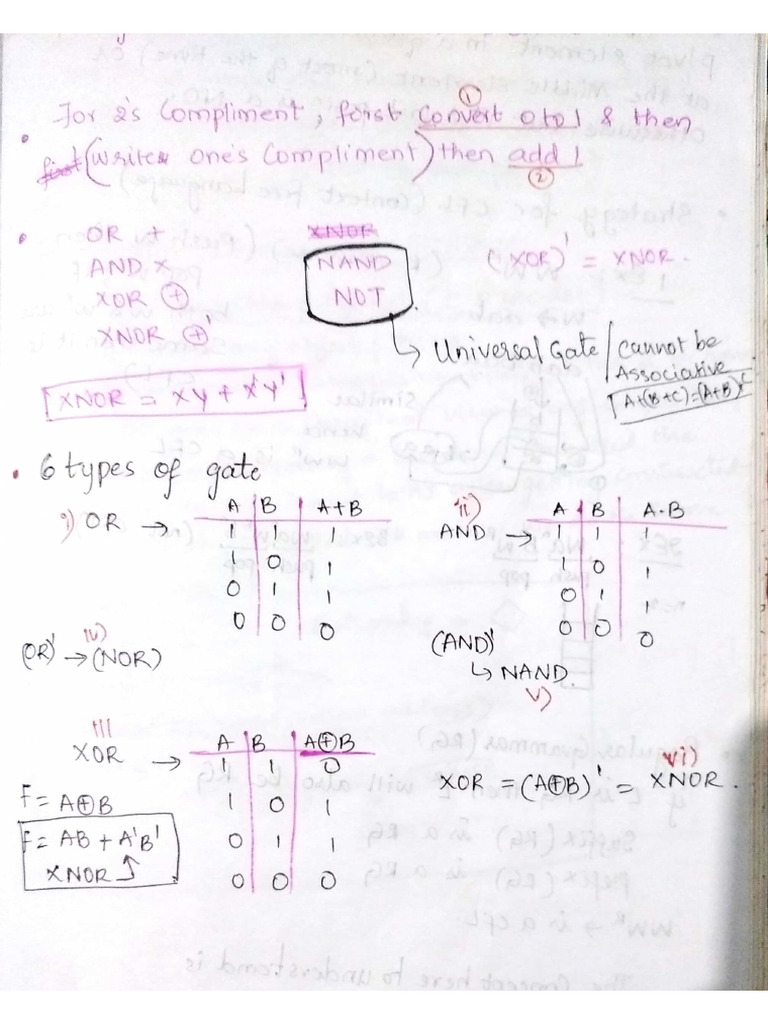 For 2's Compliment, first convert 0 to 1 & then
①
first (write one's compliment) then add 1
②
OR +
AND ×
XOR ⊕
XNOR ⊕'
XNOR
NAND
NOT
(XOR)' = XNOR.
Universal Gate / Cannot be
Associative
A+(B+C)=(A+B)+C
XNOR = XY + X'Y'
6 types of gate
i) OR → A B A+B
1 1 1
1 0 1
0 1 1
0 0 0
ii) AND → A B A.B
1 1 1
1 0 1
0 1 1
0 0 0
(OR)' → iv) (NOR)
(AND)'
↳ NAND.
v)
iii
XOR → A B A⊕B
1 1 0
1 0 1
0 1 1
0 0 0
F = A⊕B
F = AB + A'B'
XNOR
vi)
XOR = (A⊕B)' = XNOR.